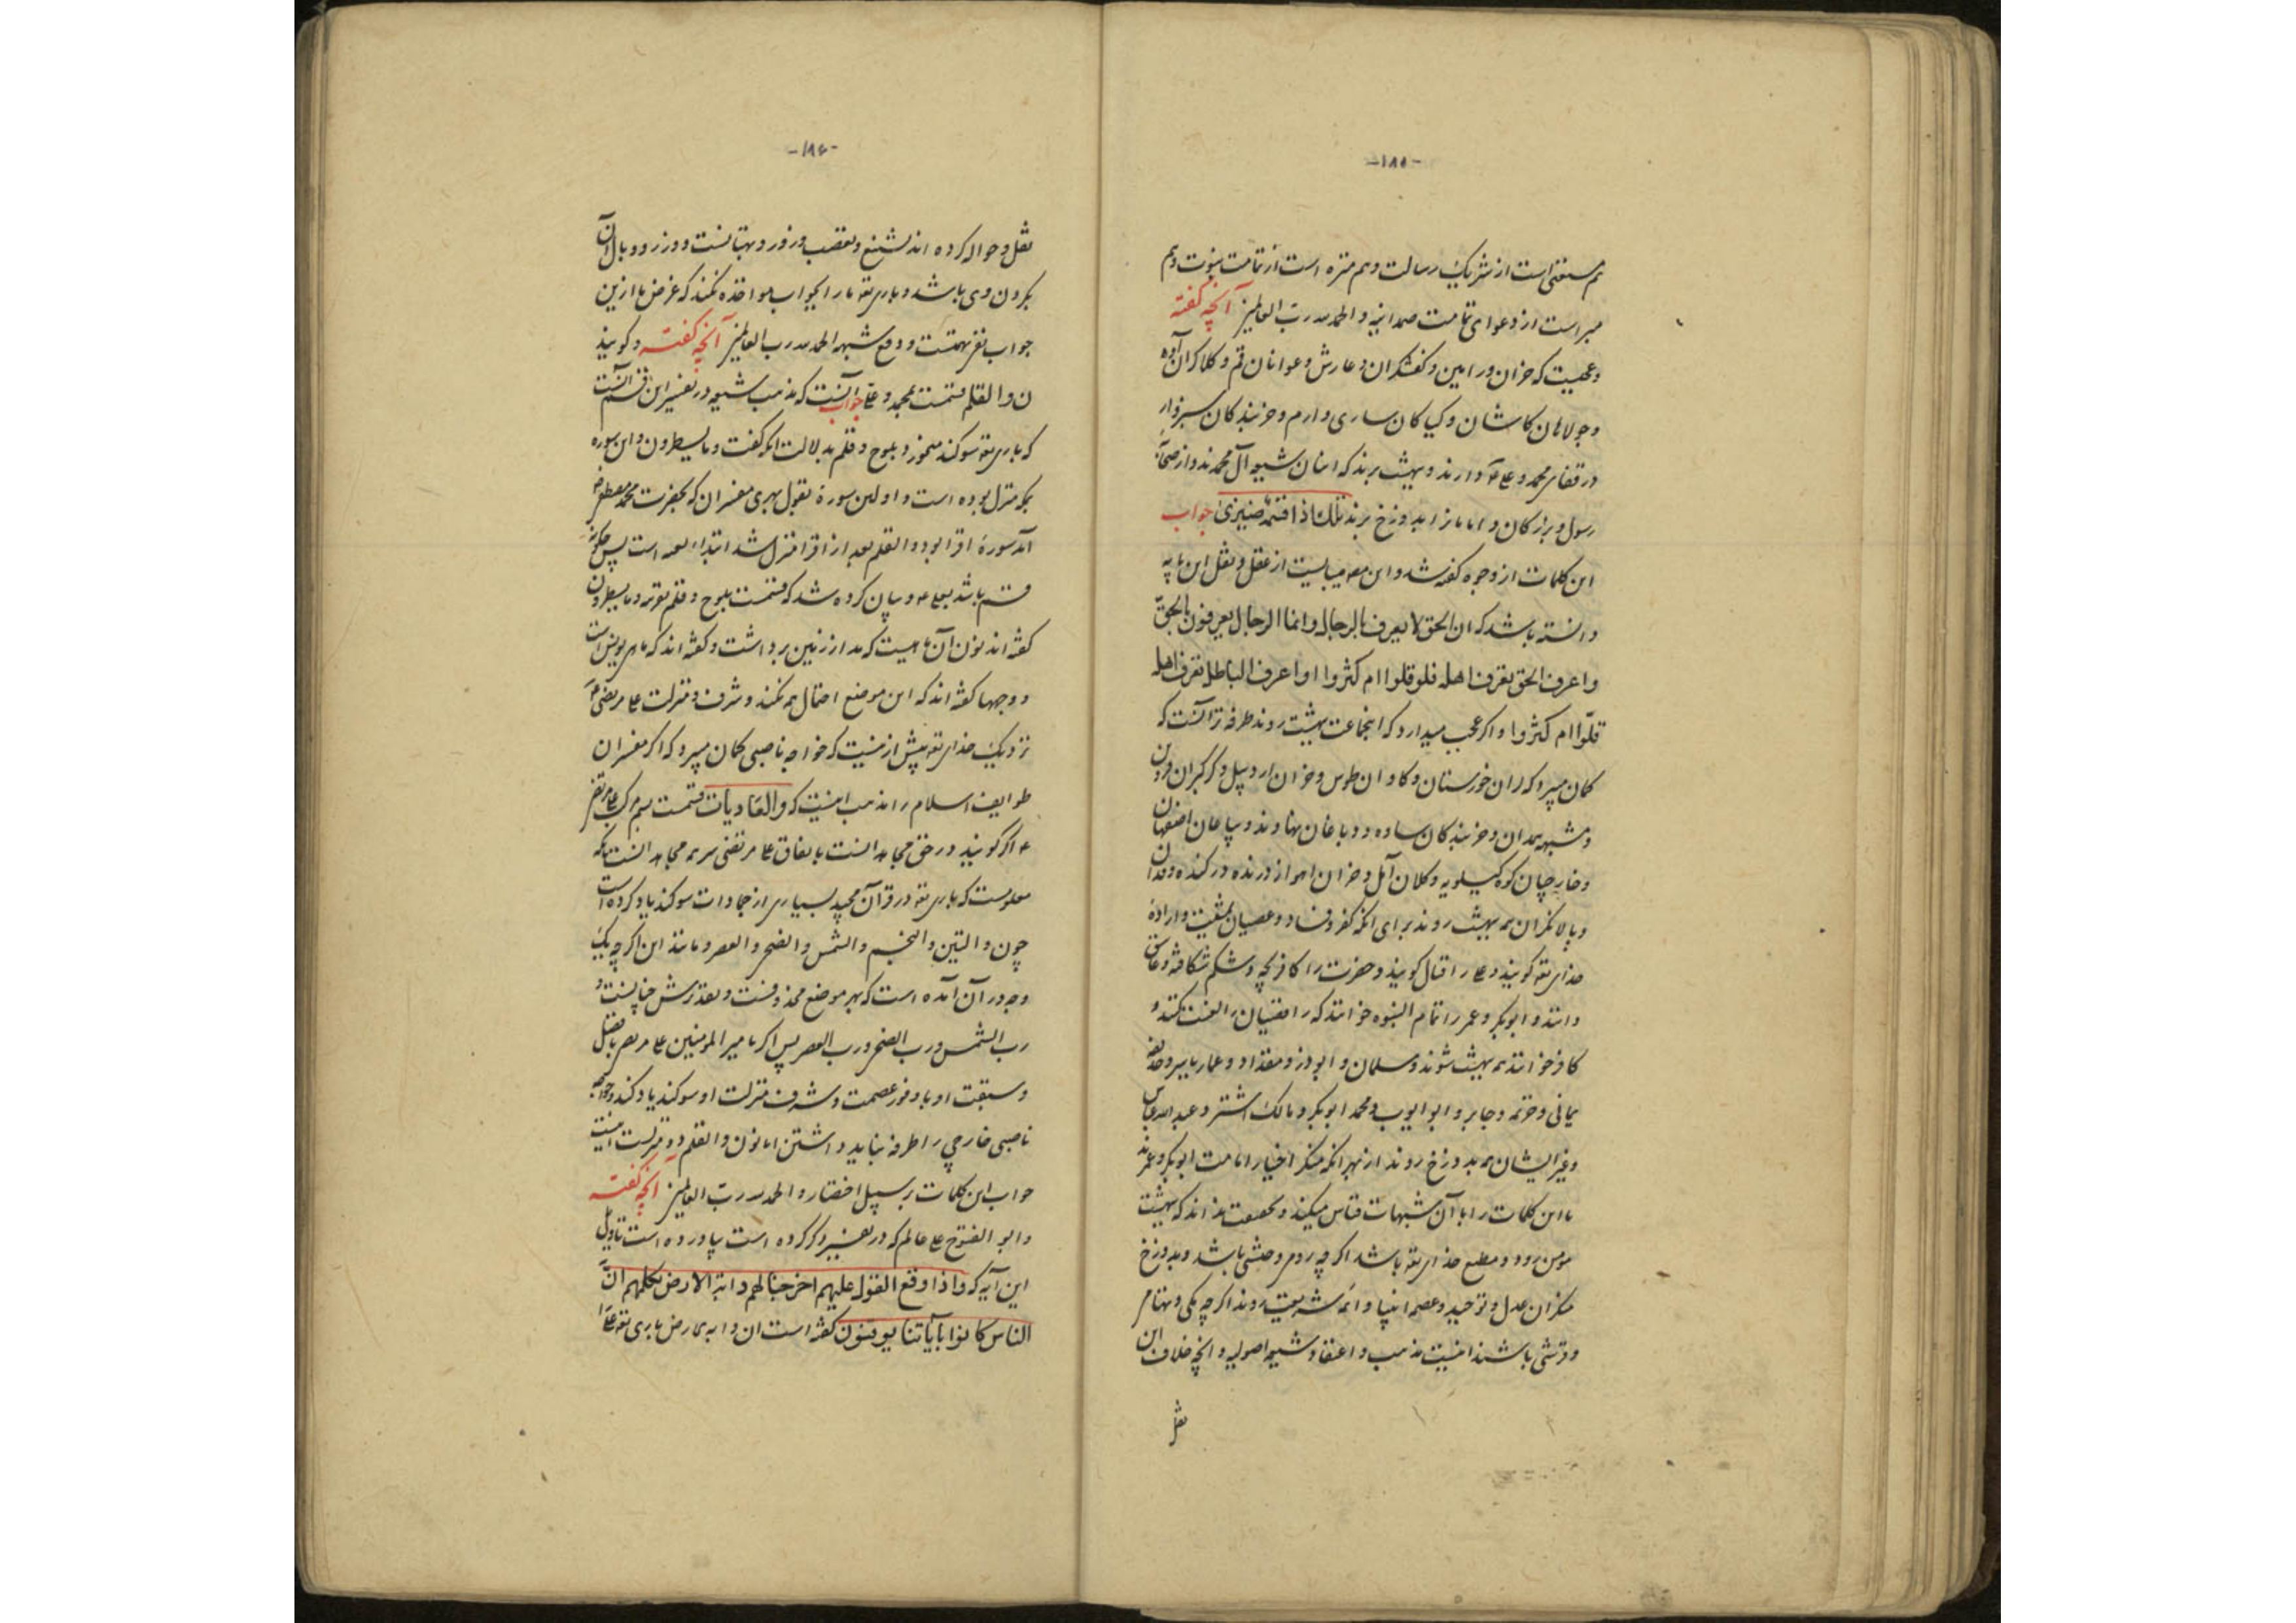 -۱۸۵-
هم مستغنی است از شریک رسالت و هم منزه است از تمامت نبوت و هم
مبراست از دعوای تمامت صمدانیه و الحمدلله رب العالمین آنچه گفته
و عجبیت که خران ورامین و کفشگران و عوانان قم و کلاکران آوه
و جولاهان کاشان و کیاکان ساری و ارم و خربندکان سبزوار
در قفای محمد و علی ع دارند و بهشت برند که اینان شیعه آل محمدند و از صحابه
رسول و بزرکان و امامان را بدوزخ برند تلک اذا قسمة ضیزی جواب
این کلمات از وجوه گفته شد و این مصیبتیست از عقل و نقل این مایه
دانسته باشد که ان الحق لا یعرف بالرجال و انما الرجال یعرفون بالحق
و اعرف الحق تعرف اهله فلو قلوا ام کثروا او اعرف الباطل تعرف اهله
قلّوا ام کثروا و اگر عجب میدارد که اینجماعت بهشت روند طرفه تر آنست که
کمان میبرد که لران خوزستان و کاوان طوس و خران اردبیل و کرکبران قزوین
و مشبهه همدان و خربندکان ساوه و دباغان نهاوند و اصفهان
و خارجیان کوه کیلویه و کلان آمل و خران اهواز
و پالانگران همه بهشت روند برای آنکه کفر و فساد و عصیان بمشیت و اراده
خدای تعه کویند و علی را قتال کویند و حضرت را کافربچه و شکم شکافته و عاق
دانند و ابوبکر و عمر را تمام النبوه خوانند که رافضیان را لعنت کنند و
کافر خوانند همه بهشت شوند و سلمان و ابوذر و مقداد و عمار یاسر و حذیفه
یمانی و خزیمه و جابر و ابوایوب و محمد ابوبکر و مالک اشتر و عبدالله عباس
و غیر ایشان همه بدوزخ روند از بهر آنکه منکر اختیار امامت ابوبکر و عمرند
تا این کلمات را با آن شبهات قیاس میکند و بحقیقت بداند که بهشت
مومن رود و مطیع خدای تعه باشد اکر چه رومی و حبشی باشد و بدوزخ
منکران عدل و توحید و عصمه انبیا و ائمه شریعت روند اکر چه مکی و تهامی
و قرشی باشند اینست مذهب و اعتقاد شیعه اصولیه و آنچه خلاف این
نقل
-۱۸۶-
نقل و حواله کرده اند تشنیع و تعصب و زور و بهتانست و وزر و وبال آن
بکردن وی باشد و باری تعه ما را بجواب مواخذه نکند که غرض ما ازین
جواب نفی تهمتست و دفع شبهه الحمدلله رب العالمین آنچه گفته و کویند
ن و القلم قسمت بمحمد و علی جواب آنست که مذهب شیعه در تفسیر این قسم آنست
که باری تعه سوکند میخورد بلوح و قلم بدلالت آنکه گفت و ما یسطرون و این سوره
بمکه منزل بوده است و اولین سوره بقول بهری مفسران که بحضرت محمد مصطفی
آمد سورهٔ اقرا بود و القلم بعد از اقرا منزل شد ابتداء بعثه است پس چکونه
قسم باشد بعلی ع و بیان کرده شد که قسمت بلوح و قلم بقوله و ما یسطرون
گفته اند نون آن ماهیست که مدار زمین برداشت و گفته اند که ماهی یونس است
و وجهها گفته اند که این موضع احتمال همه نکند و شرف و منزلت علی مرتضی ع
نزدیک خدای تعه بیش از نیست که خواجه ناصبی کمان میبرد که اگر مفسران
طوایف اسلام را مذهب اینیست که والعادیات قسمت بسم مرکب علی مرتضی
ع اکر کویند در حق مجاهدانست باتفاق علی مرتضی سر همه مجاهدانست بلکه
معلومست که باری تعه در قرآن مجید بسیاری از جمادات سوکند یاد کرده است
چون و التین و النجم و الشمس و الضحی و العصر و مانند این اکر چه یک
وجه در آن آمده است که بهر موضع محذوفست و تقدیرش چنانست
رب الشمس و رب الضحی و رب العصر پس اکر بامیر المومنین علی بفضل
و سبقت او با وفور عصمت و شرف منزلت او سوکند یاد کند خواجه
ناصبی خارجی را طرفه نباید داشتن اما نون و القلم اینست
جواب این کلمات بر سبیل اختصار و الحمدلله رب العالمین آنچه گفته
و ابو الفتوح علی عالم که در تفسیر ذکر کرده است بیاورده است تاویل
این آیه که و اذا وقع القول علیهم اخرجنا لهم دابة الارض تکلمهم انّ
الناس کانوا بآیاتنا یوقنون گفته است ان دابه باری تعه